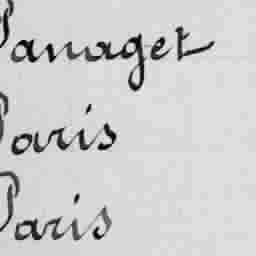 Panaget
Paris
Paris